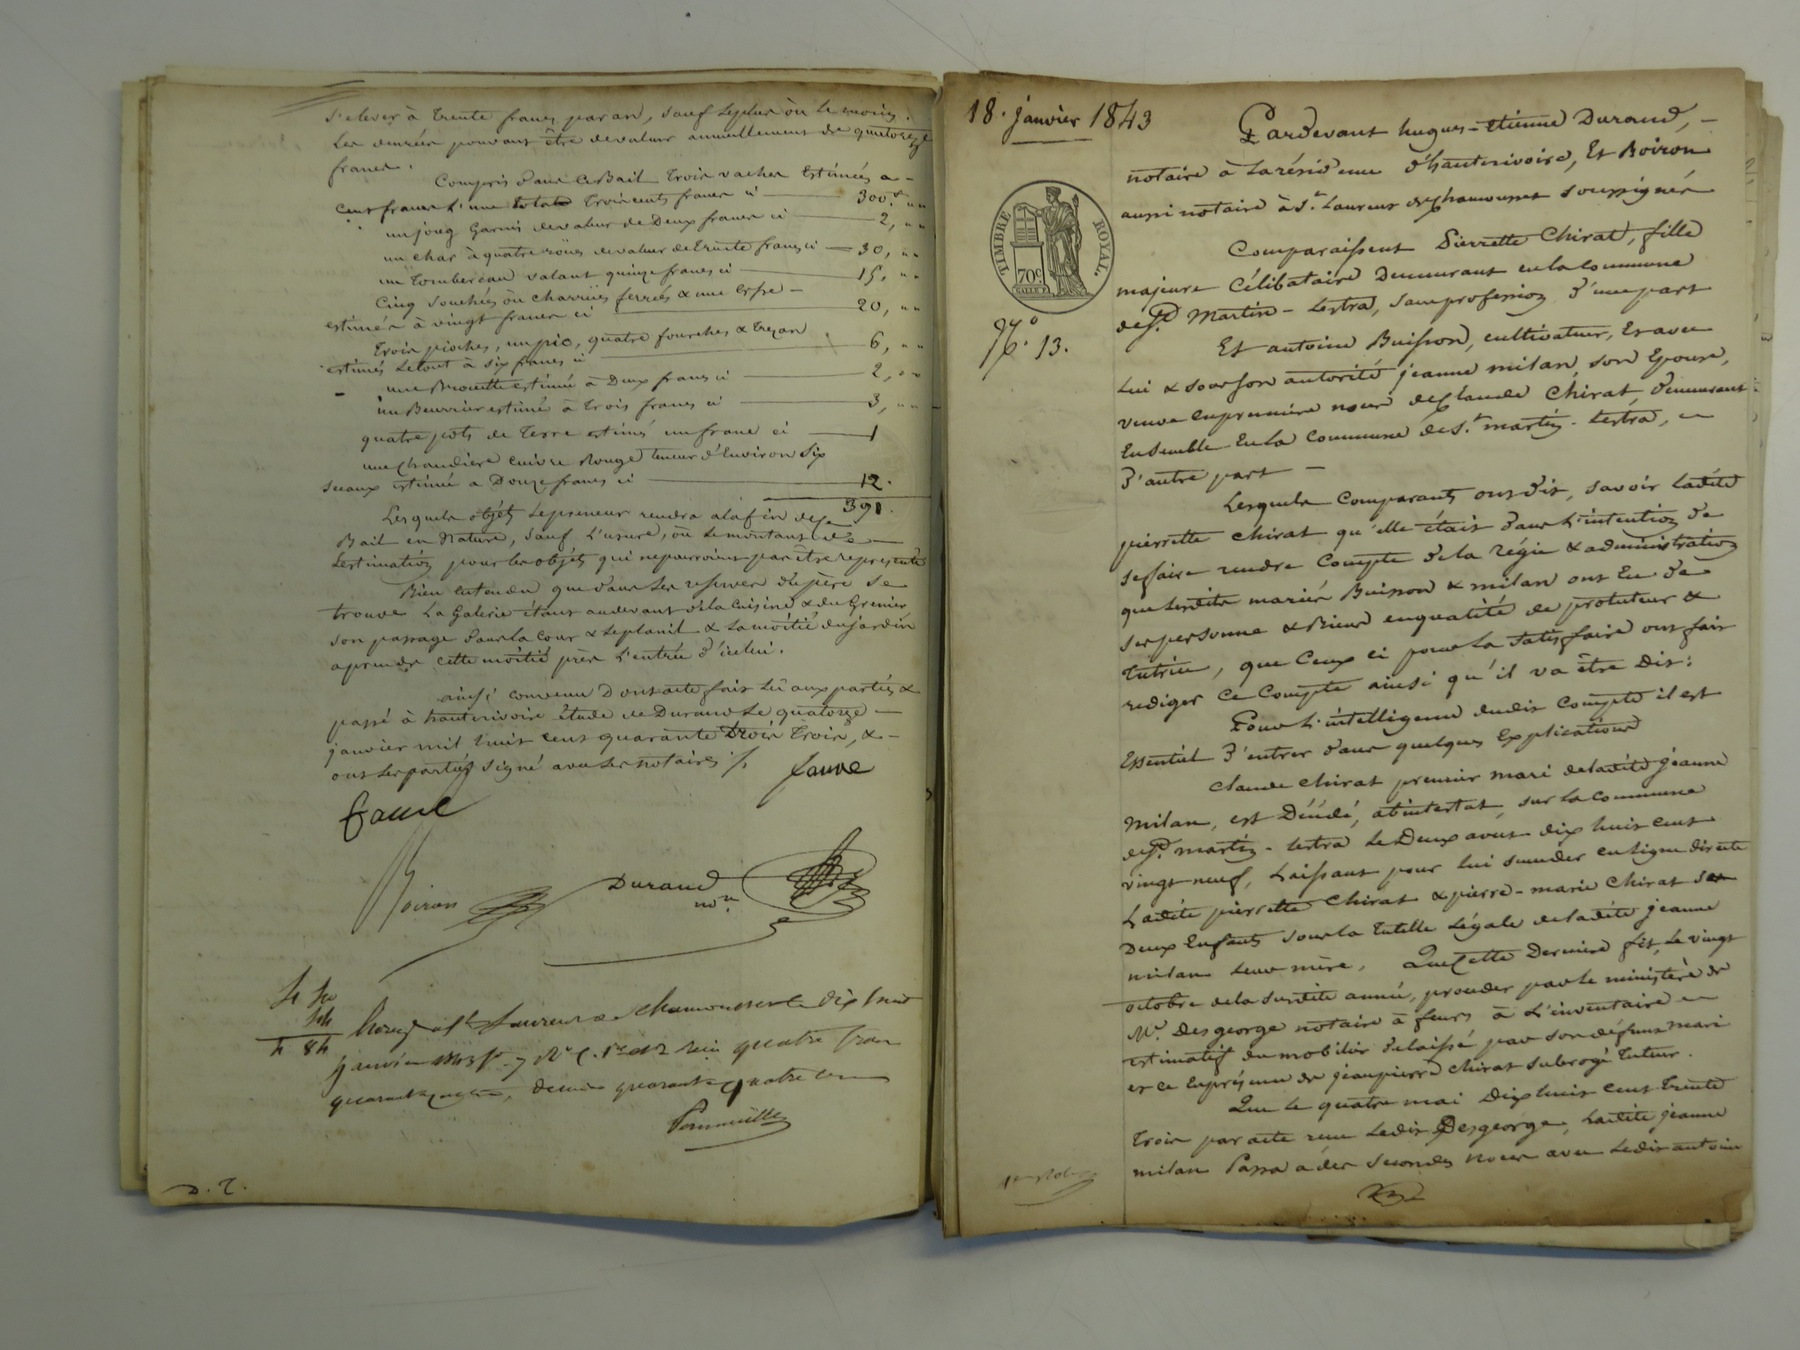 S'elever à trente francs par an, sauf leplus ou le moins.
Les denrées pouvant être devaleur annuellement de quatorze
francs.
Compris dans ce Bail trois vaches Estimées a -
Cent francs l'une total troiscents francs ci — 300.f " "
un joug Garni devaleur de Deux francs ci — 2, " "
un char à quatre roües devaleur de trente francs ci — 30, " "
un tombereau valant quinze francs ci — 15, " "
Cinq souchées ou charrües ferrées & une herse -
estimés à vingt francs ci — 20, " "
trois pioches, un pic, quatre fourches &
estimés letout à six francs ci — 6, " "
une Brouette estimée à Deux francs ci — 2, " "
un Beurrier estimé à trois francs ci — 3, " "
quatre pots de terre estimés un franc ci — 1
une chaudiere cuivre Rouge teneur d'Environ Six
seaux estimée a Douze francs ci — 12.
391.
Lesquels objets lepreneur rendra alafin duse
Bail en Nature, Sauf l'usure, ou lemontant de -
Lestimation pour les objets qui nepourroient pas être representés
Bien entendu que dans les reserves dupère se
trouve la Galerie étant audevant dela Cuisine & du Grenier
son passage dans la cour & leplanil & lamoitié dujardin
aprendre cette moitié près l'entrée d'icelui.
ainsi convenu Dont acte fait lû aux parties &
passé à hauterivoire étude de Durand le quatorze -
janvier mil huit cent quarante trois, & -
ont les parties signé avec les notaires ./.
faure
faure
Boiron
Durand
nore.
4 40
44
4 84
Enregé à St Laurent de Chamousset le dix huit
janvier 1843 fo 7 Ro C. 1re et 2 reçu quatre francs
quarante centimes, decime quarante quatre cen
D. T.
18. janvier 1843
TIMBRE ROYAL.
70c.
No. 13.
Pardevant hugues-etienne Durand, -
notaire à Larésidence d'hauterivoire, Et Boiron
aussi notaire à St. Laurent de chamousset soussignés
Comparaissent Pierrette Chirat, fille
majeure Célibataire Demeurant en la Commune
de St. Martin - Lestra, sans profession d'une part
Et antoine Buisson, cultivateur, Et avec
lui & sous son autorité jeanne milan, son Epouse,
veuve en premières noces de Claude Chirat, demeurant
Ensemble En la Commune de St. martin - Lestra, -
d'autre part -
Lesquels Comparants ont dit, savoir ladite
pierrette Chirat qu'elle était dans l'intention de
se faire rendre Compte de la régie & administration
que lesdits mariés Buisson & milan ont Eu de
sa personne & Biens en qualité de protuteur &
tutrice, que Ceux ci pour la Satisfaire ont fait
rediger ce Compte ainsi qu'il va être dit:
Pour l'intelligence dudit Compte il est
Essentiel d'entrer dans quelques Explications
Claude Chirat premier mari de ladite jeanne
Milan, est Décédé, abintestat, sur la Commune
de St. martin - Lestra le Deux aout dix huit cent
vingt neuf, laissant pour lui succeder en ligne directe
Ladite pierrette Chirat & pierre-marie Chirat ses
Deux Enfants sous la tutelle légale de ladite jeanne
milan leur mère. Que Cette Dernière fit, le vingt
octobre de la susdite année, proceder par le ministère de
Me. Desgeorge notaire à feurs à l'inventaire -
estimatif du mobilier délaissé par son défunt mari
et ce En présence de jean pierre Chirat subrogé tuteur.
Que le quatre mai Dix huit cent trente
trois par acte reçu ledit Desgeorge, ladite jeanne
milan Passa a des Secondes noces avec ledit antoine
1er Role